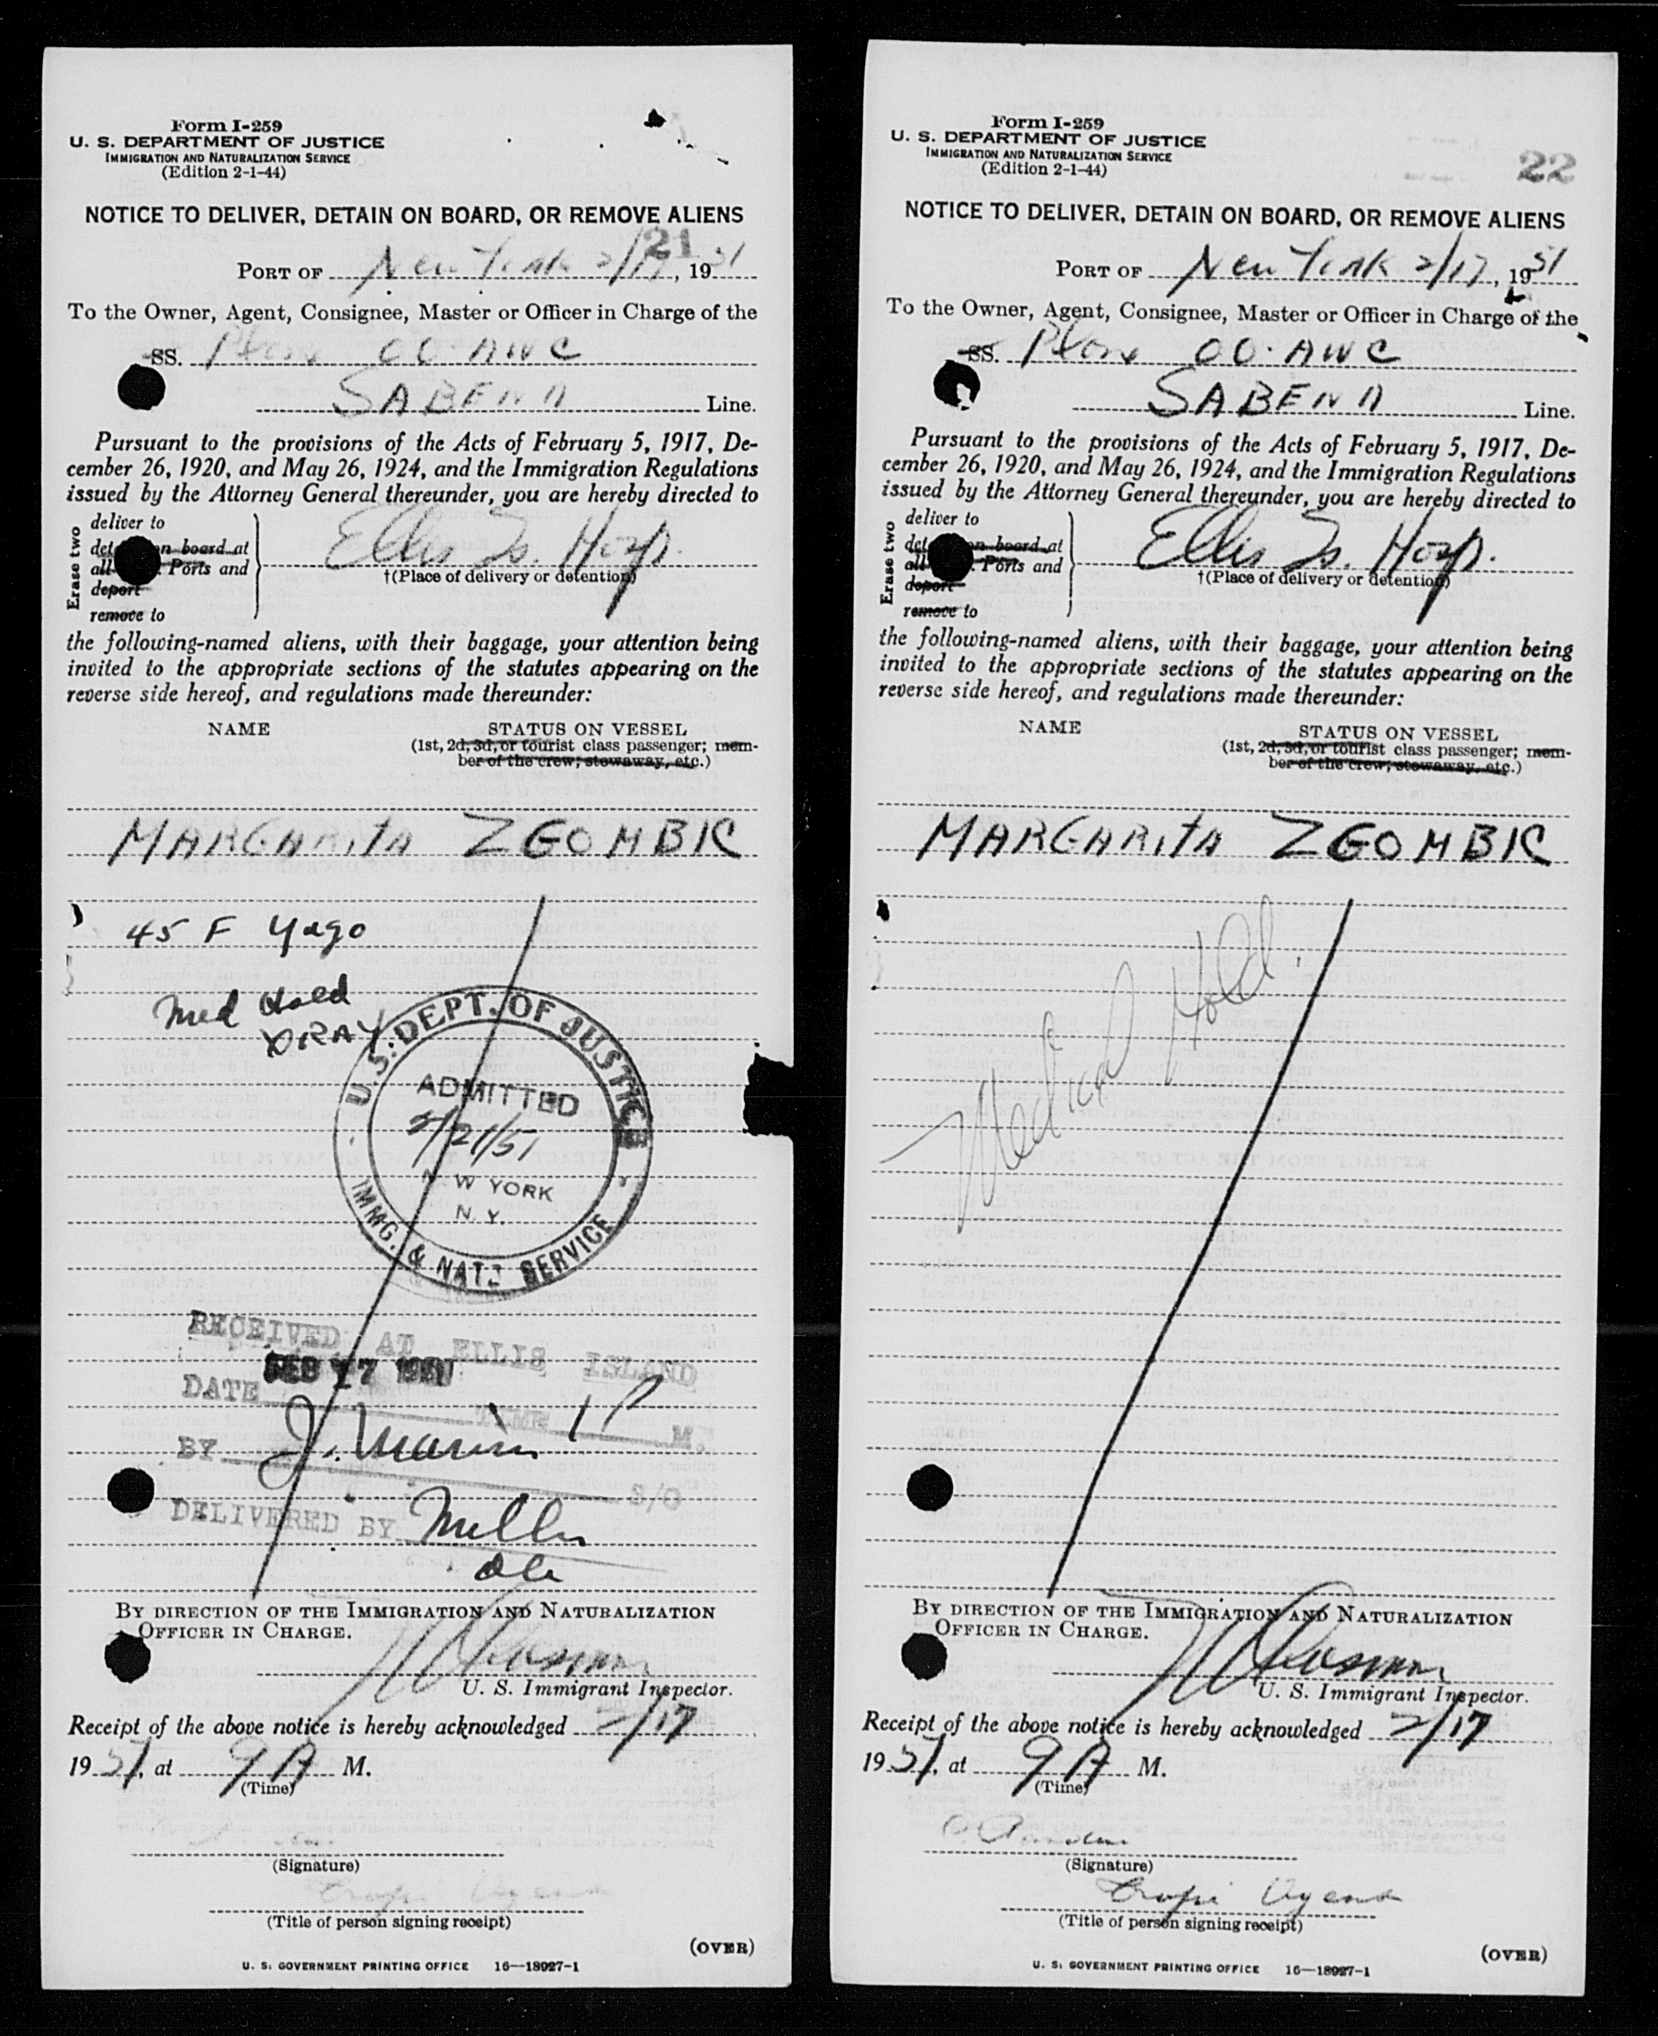 Form I-259
U. S. DEPARTMENT OF JUSTICE
IMMIGRATION AND NATURALIZATION SERVICE
(Edition 2-1-44)
NOTICE TO DELIVER, DETAIN ON BOARD, OR REMOVE ALIENS
21
PORT OF New York 2/17, 1951
To the Owner, Agent, Consignee, Master or Officer in Charge of the
SS. Plane OO-AWC
SABENA Line.
Pursuant to the provisions of the Acts of February 5, 1917, De-
cember 26, 1920, and May 26, 1924, and the Immigration Regulations
issued by the Attorney General thereunder, you are hereby directed to
Erase two
deliver to
det n board at
all Ports and
deport
remove to
Ellis Is. Hosp.
†(Place of delivery or detention)
the following-named aliens, with their baggage, your attention being
invited to the appropriate sections of the statutes appearing on the
reverse side hereof, and regulations made thereunder:
NAME STATUS ON VESSEL
(1st, 2d, 3d, or tourist class passenger; mem-
ber of the crew; stowaway, etc.)
MARGARITA ZGOMBIC
45 F Yugo
Med Hold
XRAY
U.S. DEPT. OF JUSTICE
ADMITTED
2/21/51
N W YORK
N. Y.
IMMG. & NATZ SERVICE
RECEIVED AT ELLIS ISLAND
DATE FEB 17 1951 TIME 1 P M.
BY J. Marin S/O
DELIVERED BY Miller
By direction of the Immigration and Naturalization
Officer in Charge.
U. S. Immigrant Inspector.
Receipt of the above notice is hereby acknowledged 2/17
1951, at 9 A M.
(Time)
(Signature)
Agent
(Title of person signing receipt)
(OVER)
U. S. GOVERNMENT PRINTING OFFICE 16—18927-1
Form I-259
U. S. DEPARTMENT OF JUSTICE
IMMIGRATION AND NATURALIZATION SERVICE
(Edition 2-1-44)
22
NOTICE TO DELIVER, DETAIN ON BOARD, OR REMOVE ALIENS
PORT OF New York 2/17, 1951
To the Owner, Agent, Consignee, Master or Officer in Charge of the
SS. Plane OO-AWC
SABENA Line.
Pursuant to the provisions of the Acts of February 5, 1917, De-
cember 26, 1920, and May 26, 1924, and the Immigration Regulations
issued by the Attorney General thereunder, you are hereby directed to
Erase two
deliver to
det on board at
all Ports and
deport
remove to
Ellis Is. Hosp.
†(Place of delivery or detention)
the following-named aliens, with their baggage, your attention being
invited to the appropriate sections of the statutes appearing on the
reverse side hereof, and regulations made thereunder:
NAME STATUS ON VESSEL
(1st, 2d, 3d, or tourist class passenger; mem-
ber of the crew; stowaway, etc.)
MARGARITA ZGOMBIC
Medical Hold.
By direction of the Immigration and Naturalization
Officer in Charge.
U. S. Immigrant Inspector.
Receipt of the above notice is hereby acknowledged 2/17
1951, at 9 A M.
(Time)
(Signature)
Agent
(Title of person signing receipt)
(OVER)
U. S. GOVERNMENT PRINTING OFFICE 16—18927-1